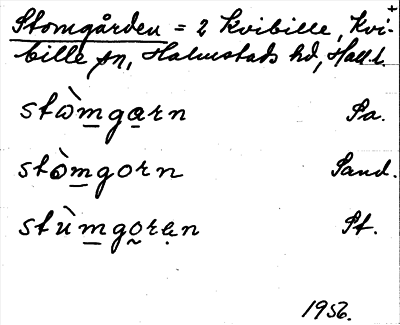 +
Stomgården = 2 Kvibille, Kvi-
bille sn, Halmstads hd, Hall. l.
stò̀m̲ga̲rn Sa.
stò̀m̲gorn Sand.
stùm̲go̰rạn St.
1956.